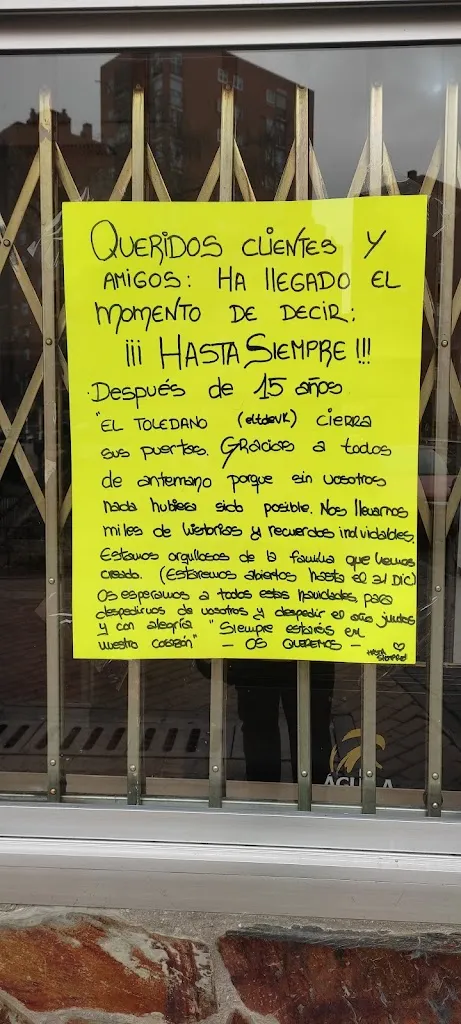 QUERIDOS CLIENTES Y
AMIGOS: HA LLEGADO EL
MOMENTO DE DECIR:
¡¡¡ HASTA SIEMPRE !!!
Después de 15 años
"EL TOLEDANO (eltdevk) cierra
sus puertas. Gracias a todos
de antemano porque sin vosotros
nada hubiera sido posible. Nos llevamos
miles de historias y recuerdos inolvidables.
Estamos orgullosos de la familia que hemos
creado. (Estaremos abiertos hasta el 31 Dic)
Os esperamos a todos estas navidades, para
despedirnos de vosotros y despedir el año juntos
y con alegría "Siempre estaréis en
nuestro corazón" - OS QUEREMOS -
HASTA SIEMPRE!
ÁGUILA